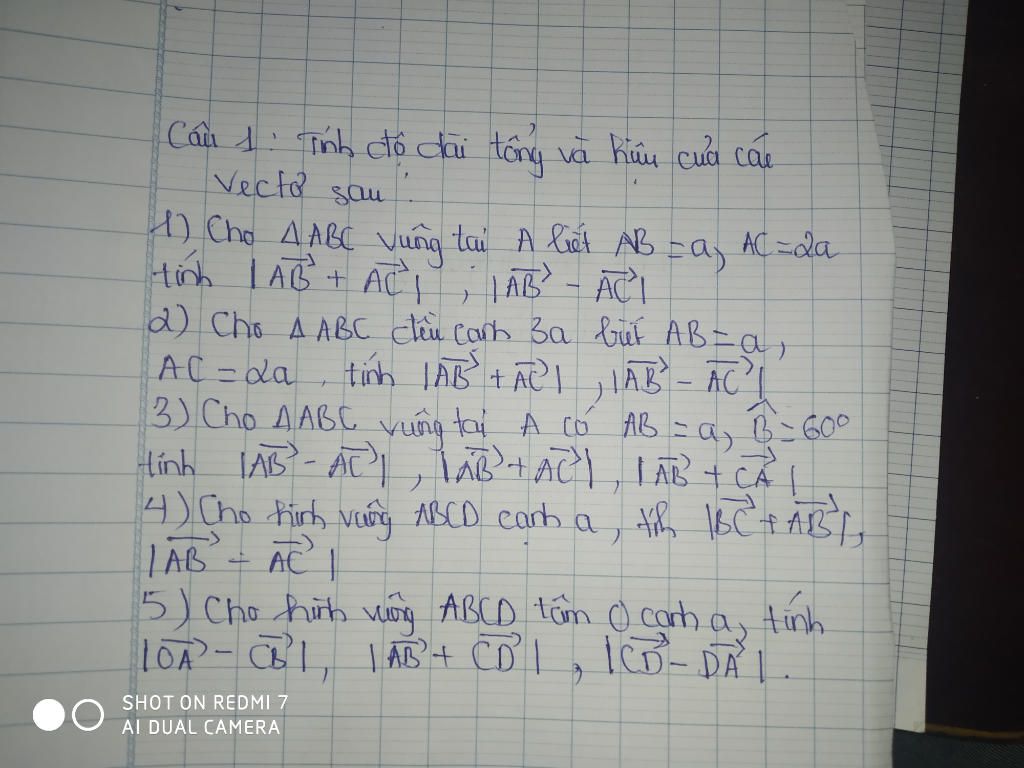 Câu 1: Tính độ dài tổng và hiệu của các
vectơ sau:
1) Cho ΔABC vuông tại A biết AB = a, AC = 2a
tính |AB→ + AC→|, |AB→ - AC→|
2) Cho ΔABC đều cạnh 3a biết AB = a,
AC = 2a, tính |AB→ + AC→|, |AB→ - AC→|
3) Cho ΔABC vuông tại A có AB = a, B̂ = 60°
tính |AB→ - AC→|, |AB→ + AC→|, |AB→ + CA→|
4) Cho hình vuông ABCD cạnh a, tính |BC→ + AB→|,
|AB→ - AC→|
5) Cho hình vuông ABCD tâm O cạnh a, tính
|OA→ - CB→|, |AB→ + CD→|, |CD→ - DA→|.
SHOT ON REDMI 7
AI DUAL CAMERA